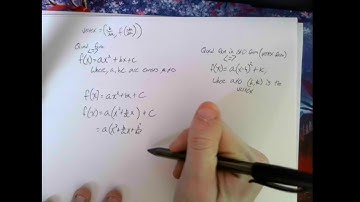 vertex = (
Quad func
f(x) = ax² + bx + c
where, a, b, c are consts, a≠0
Quad fun in STD form (vertex form)
f(x) = a(x-h)² + k,
where a≠0 (h, k) is the
vertex
f(x) = ax² + bx + c
f(x) = a(x² + b/a x) + c
= a(x² + b/a x +